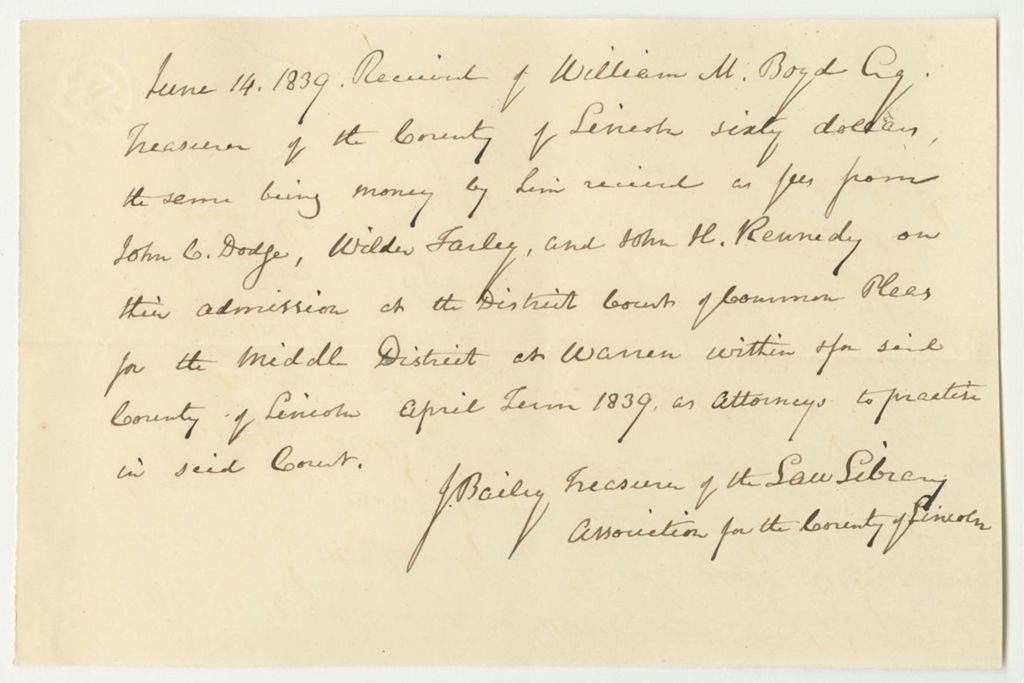 June 14. 1839. Received of William M. Boyd Esq.
Treasurer of the County of Lincoln sixty dollars,
the same being money by him received as fees from
John C. Dodge, Wilder Farley, and John H. Kennedy on
their admission at the District Court of Common Pleas
for the Middle District at Warren within & for said
County of Lincoln April Term 1839. as Attorneys to practise
in said Court.
J. Bailey Treasurer of the Law Library
Association for the County of Lincoln